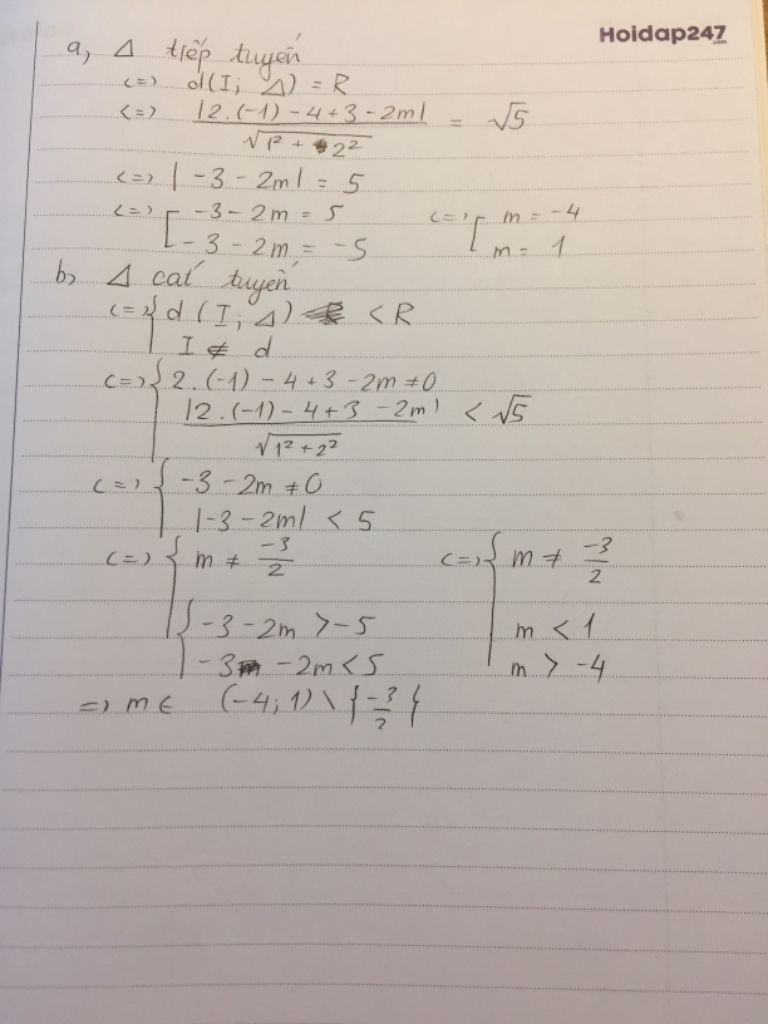 Hoidap247
.com
a, Δ tiếp tuyến
<=> d(I; Δ) = R
<=> |2.(-1) - 4 + 3 - 2m| / √1² + 2² = √5
<=> | -3 - 2m| = 5
<=> [ -3 - 2m = 5 <=> [ m = -4
- 3 - 2m = -5 m = 1
b, Δ cát tuyến
<=> { d (I; Δ) < R
I ∉ d
<=> { 2.(-1) - 4 + 3 - 2m ≠ 0
|2.(-1) - 4 + 3 - 2m| / √1² + 2² < √5
<=> { -3 - 2m ≠ 0
|-3 - 2m| < 5
<=> { m ≠ -3/2 <=> { m ≠ -3/2
{ -3 - 2m > -5 m < 1
-3 - 2m < 5 m > -4
=> m ∈ (-4; 1) \ { -3/2 }